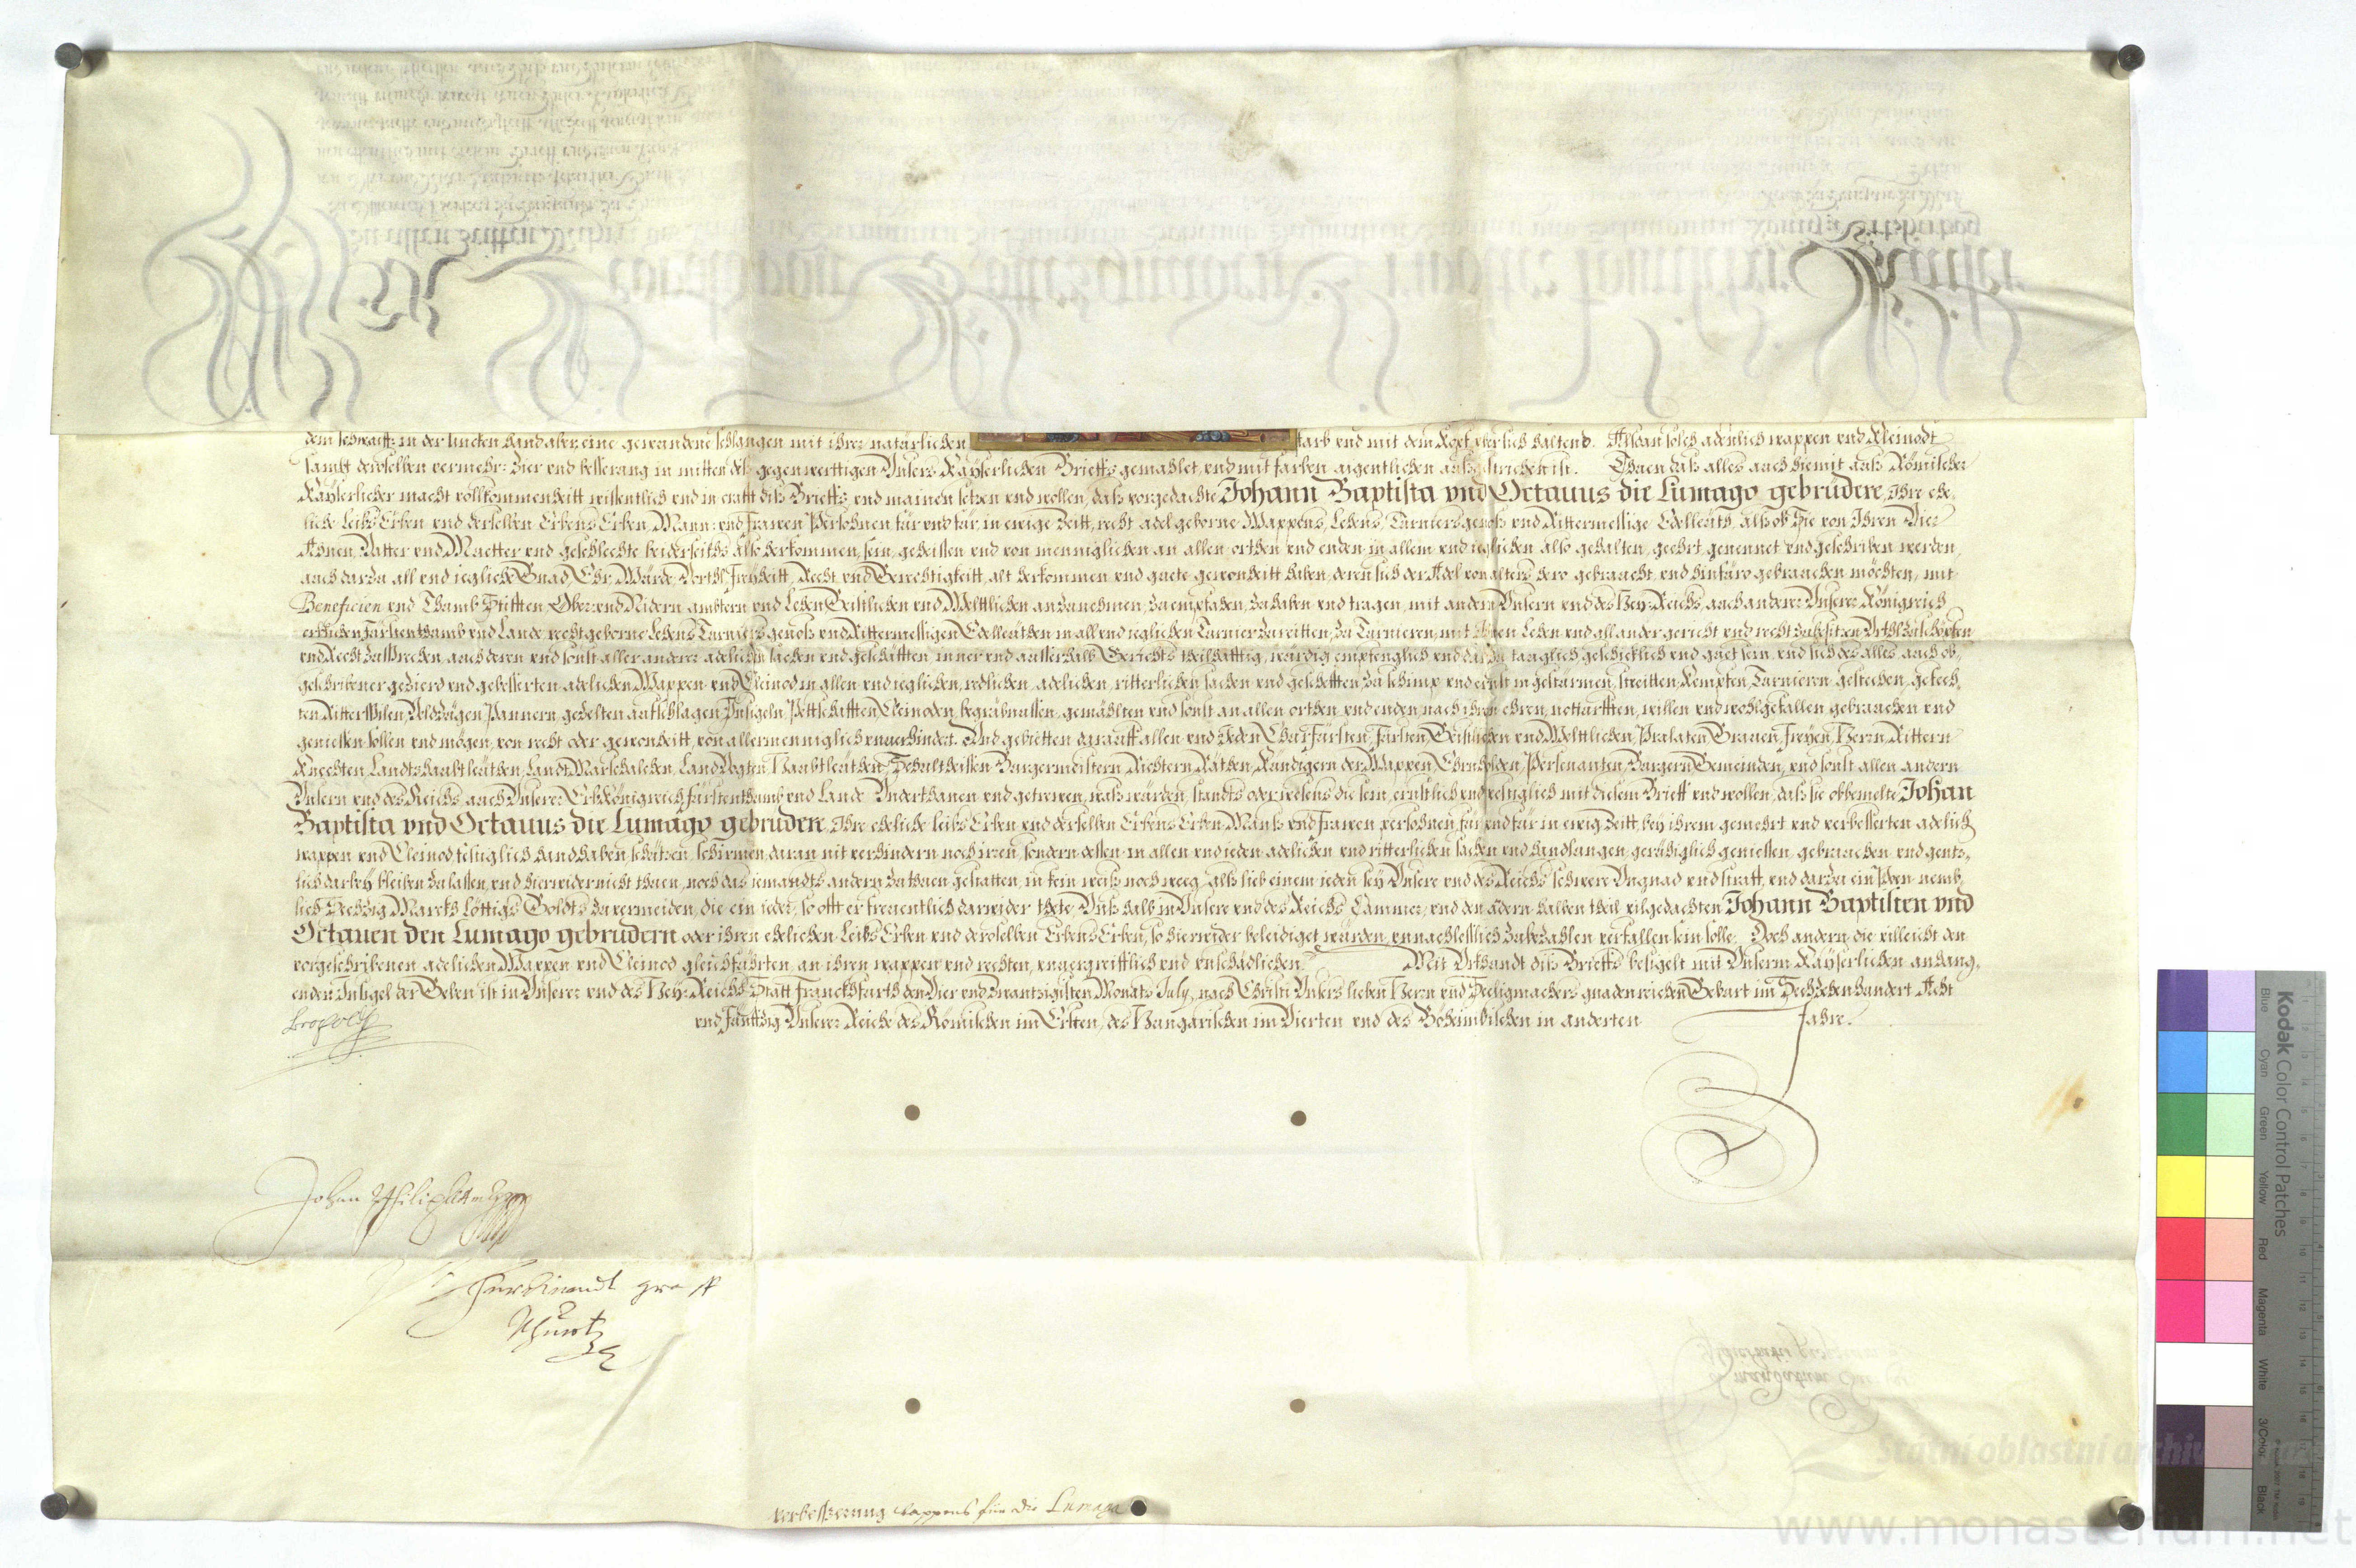 dem schwaiff: in der lincken hand aber eine gewundene schlangen mit ihrer natürlichen farb vnd mit dem Kopf vber sich haltend. Alßdan solch adenlich wappen vnd Kleinodt
sambt derselben vermehr: Zier vnd besserung in mitten diß gegenwerttigen Vnsers Kayserlichen Brieffs gemahlet, vnd mit farben aigentlichen außgestrichen ist. Thuen das alles auch hiemit auß Römischer
Kayserlicher macht vollkommenheitt wissentlich vnd in crafft diß Brieffs, vnd mainen setzen vnd wollen, daß vorgedachte Johann Baptista vnd Octauus die Lumago gebrüdere, Ihre ehe-
liche Leibs Erben vnd derselben Erbens Erben, Mann: vnd Frawen Persohnen, für vnd für in ewige Zeitt, recht adel geborne Wappens, Lehens, Turniersgenoß vnd Rittermessige Edelleüth, alß ob Sie von Ihren Vier
Ahnen, Vatter vnd Muetter vnd geschlechte beiderseiths also herkommen, sein, geheissen vnd von menniglichen an allen orthen vnd enden in allem vnd ieglichen also gehalten, geehrt, genennet vnd geschriben werden,
auch darzu all vnd iegliche Gnad, Ehr, Würde, Vorthl, Freyheitt, Recht vnd Gerechtigkeitt, alt herkommen vnd guete gewonheitt haben, deren sich der Adel von alters hero gebraucht, vnd hinfüro gebrauchen möchten, mit
Beneficien vnd Thumb Stifften Ober: vnd Nidern ambtern vnd Lehen Geistlichen vnd Welttlichen anzunehmen, zu empfahen, zu haben vnd tragen, mit andern Vnsern vnd des Hey: Reichs, auch anderer Vnserer Königreich
erblichen Fürstenthumb vnd Lande rechtgeborne Lehens Turniersgenoß vnd Rittermessigen Edelleüthen in all vnd ieglichen Turnier zureitten, zu Turnieren, mit ihnen Lehen vnd all ander gericht vnd recht zubesitzen, Vrthl zuschöpfen
vnd Recht zusprechen, auch deren vnd sonst aller anderer adelichen sachen vnd geschäfften inner vnd ausserhalb Gerichts theilhafftig, würdig empfenglich vnd darzu tauglich geschicklich vnd guet sein, vnd sich des alles auch ob-
geschribener gezierd vnd gebesserten adelichen Wappen vnd Cleinod in allen vnd ieglichen, redlichen, adelichen, ritterlichen sachen vnd geschefften zu schimpf vnd ernst in gestürmen, streitten, Kempfen, Turnieren, gestechen, gefech-
ten Ritterspilen, Veldzügen Pannern gezelten aufschlagen Insigeln, Pettschafften Cleinoden, begräbnussen, gemählten vnd sonst an allen orthen vnd enden, nach ihren ehren, notturfften, willen vnd wohlgefallen gebrauchen vnd
geniessen sollen vnd mögen, von recht oder gewonheitt, von allermenniglich vnuerhindert. Vnd gebietten darauff allen vnd Jeden Churfürsten, Fürsten, Geistlichen vnd Welttlichen, Prælaten, Grauen, Freyen, Herrn, Rittern
Knechten, Landtshaubtleüthen, LandtMarschalchen, LandVögten, Haubtleüthen, Schultheissen Burgermeistern Richtern, Räthen, Kündigern der Wappen Ehrnholden, Persenanten, Burgern Gemeinden, vnd sonst allen andern
Vnsern vnd des Reichs, auch Vnserer Erbkönigreich, Fürstenthumb vnd Lande Vnderthanen vnd getrewen, waß würden, standts oder wesens die sein, ernstlich vnd vestiglich mit diesem Brieff vnd wollen, daß sie obbemelte Johan
Baptista vnd Octauus die Lumago gebrüdere, Ihre eheliche leibs Erben vnd derselben Erbens Erben, Manß: vnd Frawen persohnen, für vnd für in ewig Zeitt, bey ihrem gemehrt vnd verbesserten adelich
wappen vnd Cleinod vestiglich handhaben, schützen, schirmen, daran nit verhindern noch irren, sondern dessen in allen vnd ieden adelichen vnd ritterlichen sachen vnd handlungen, gerühiglich geniessen, gebrauchen, vnd gentz-
lich darbey bleiben zulassen, vnd hierwider nicht thuen, noch das iemandts andern zuthuen gestatten, in kein weiß noch weeg, alß lieb einem ieden sey Vnsere vnd des Reichs schwere Vngnad vnd straff, vnd darzu ein Poen nemb-
lich Sechzig Marckh Löttigs Goldts zuuermeiden, die ein ieder, so offt er freuentlich darwider thete, Vnß halb in Vnsere vnd des Reichs Cammer, vnd den andern halben theil vilgedachten Johann Baptisten vnd
Octauen den Lumago gebrüdern oder ihren ehelichen Leibs Erben vnd deroselben Erbens Erben, so hierwider beleidiget würden, vnnachlesslich zubezahlen verfallen sein solle. Doch andern, die villeicht den
vorgeschribenen adelichen Wappen vnd Cleinod gleich führten, an ihren wappen vnd rechten, vnuergreifflich vnd vnschädlichen. Mit Vrkhundt diß Brieffs besigelt mit Vnserm Kayserlichen anhang-
enden Insigel der Geben ist in Vnserer vnd des Hey: Reichs Statt Franckhfurth den Vier vnd zwantzigisten Monats July, nach Christi Vnsers lieben Herrn vnd Seeligmachers gnadenreichen Geburt im Sechzehenhundert Acht
vnd Fünffzig Vnserer Reiche des Römischen im Ersten, des Hungarischen im Vierten vnd des Böheimbischen in anderten Jahre.
Leopold
Johan Philip
Ferdinandt graff
Khurtz
verbesserung wappens für die Lumaga
Kodak Color Control Patches
Blue Cyan Green Yellow Red Magenta White 3/Color Black
Státní oblastní archiv
www.monasterium.net